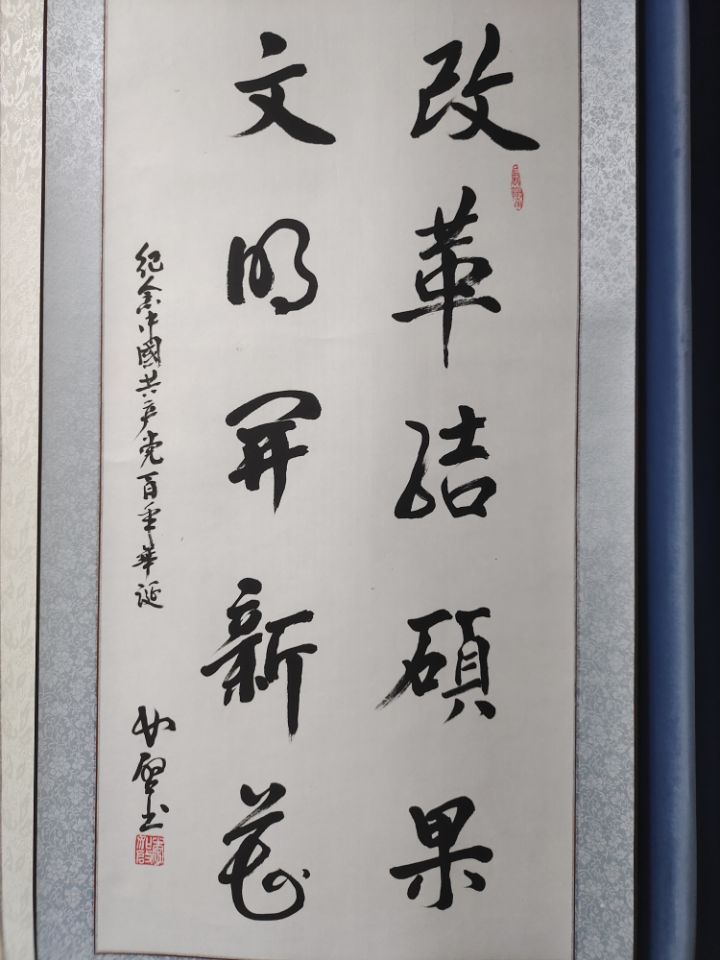 改革结硕果
文明開新花
纪念中國共产党百年華诞